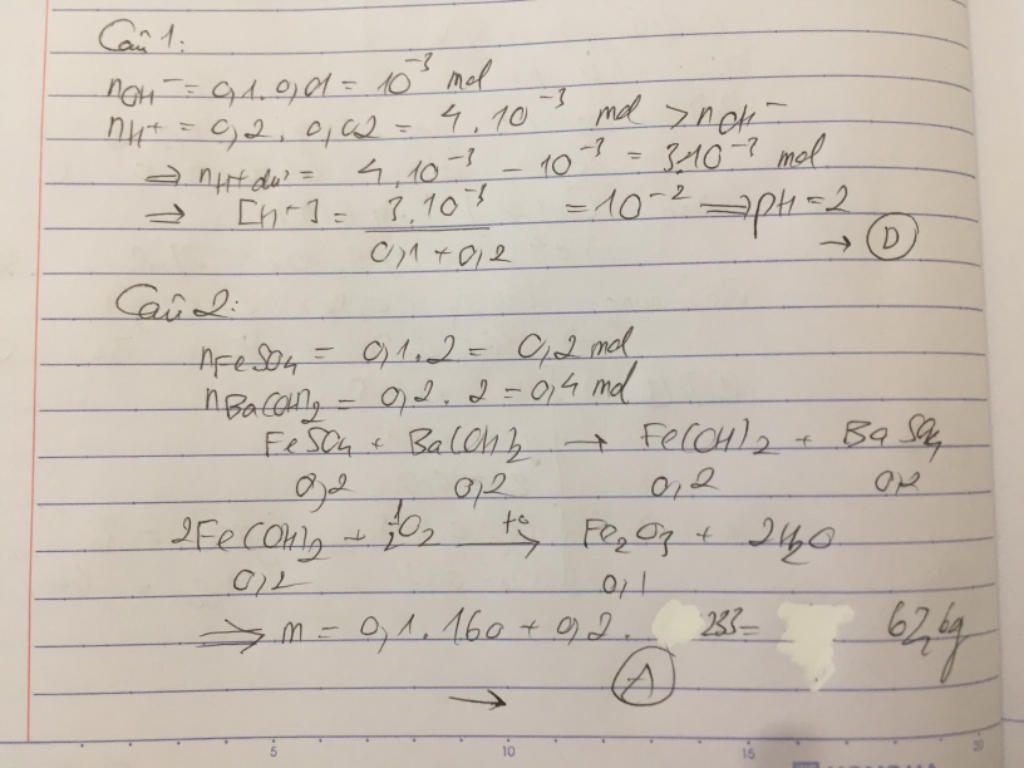 Câu 1:
nOH⁻ = 0,1.0,01 = 10⁻³ mol
nH+ = 0,2. 0,02 = 4.10⁻³ mol > nOH⁻
⇒ nH+ dư = 4.10⁻³ - 10⁻³ = 3.10⁻³ mol
⇒ [H⁺] = 3.10⁻³ / 0,1+0,2 = 10⁻² ⇒ pH = 2
→ D
Câu 2:
nFeSO4 = 0,1.2 = 0,2 mol
nBa(OH)2 = 0,2. 2 = 0,4 mol
FeSO4 + Ba(OH)2 → Fe(OH)2 + BaSO4
0,2 0,2 0,2 0,2
2Fe(OH)2 + 1/2O2 t° → Fe2O3 + 2H2O
0,2 0,1
⇒ m = 0,1.160 + 0,2. 233 = 62,6g
→ A
5 10 15 20